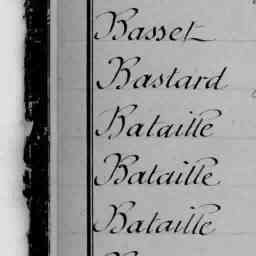 Basset
Bastard
Bataille
Bataille
Bataille